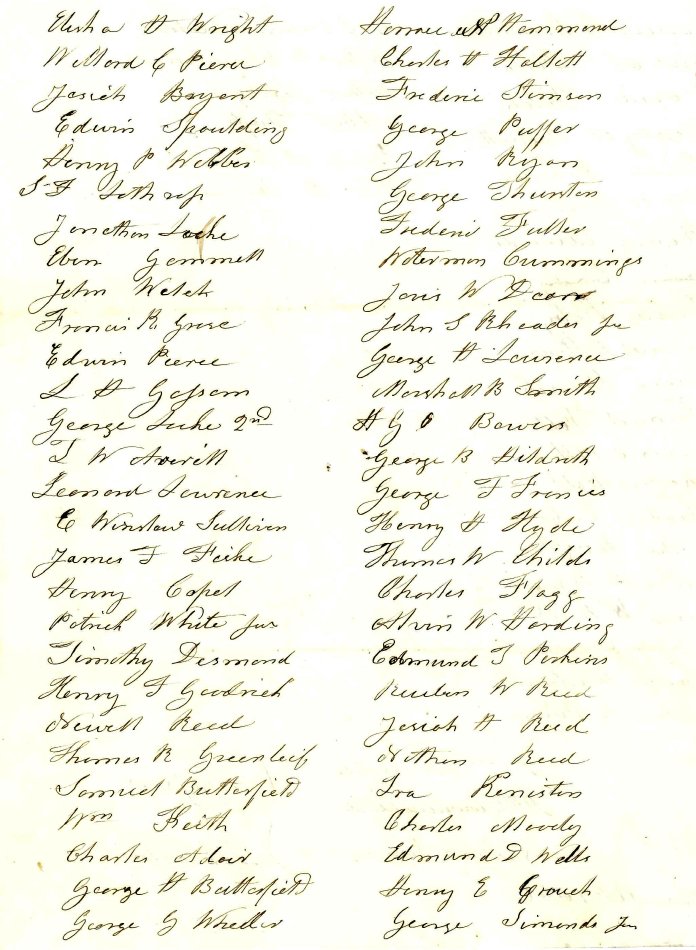 Elisha H Wright
Willard C Pierce
Josiah Bryant
Edwin Spaulding
Henry P Webber
S F Lothrop
Jonathan Locke
Eben Gammell
John Welch
Francis R Grose
Edwin Pierce
L H Gossom
George Locke 2nd
L W Averill
Leonard Lawrence
E Winslow Sullivan
James F Fiske
Henry Copel
Patrick White Jur
Timothy Desmond
Henry F Goodrich
Newell Reed
Thomas R Greenleif
Samuel Butterfield
Wm Keith
Charles Adair
George H Butterfield
George G Wheeler
Horace Hammond
Charles H Hallett
Frederic Stimson
George Puffer
John Ryan
George Thurston
Frederic Fuller
Waterman Cummings
W
John S Rhoades Jr
George H Lawrence
Marshall B Smith
H G O Bowers
George B Hildreth
George F Francis
Henry H Hyde
Thomas W Childs
Charles Flagg
Alvin W Harding
Edmund T Perkins
Reuben W Reed
Josiah H Reed
Nathan Reed
Ira Keniston
Charles Moody
Edmund D Wells
Henry E Crouch
George Simonds Jr